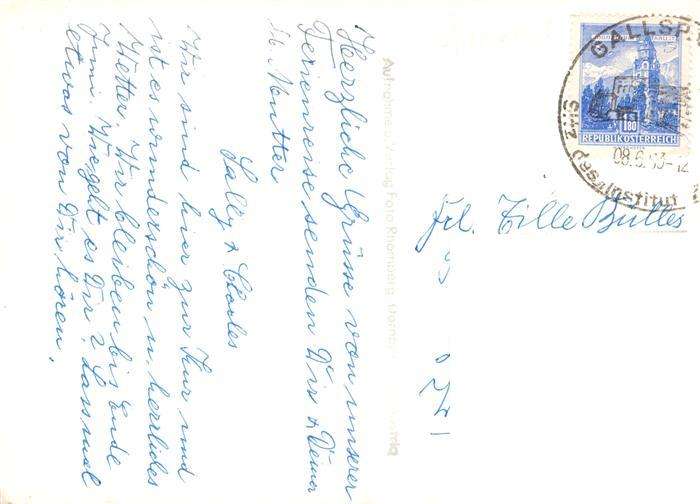 Herzliche Grüsse von unserer
Ferienreise senden Dir & Deiner
lb. Mutter
Sally & Charles
Wir sind hier zur Kur und
ist es wunderschön u. herrliches
Wetter. Wir bleiben bis Ende
Juni. Wie geht es Dir? Lass mal
etwas von Dir hören.
Frl. Tille Buttes
GALLSP
Sitz des Institut
08.6.63-12
1.80
REPUBLIK ÖSTERREICH
Aufnahme Verlag Foto Rhomberg